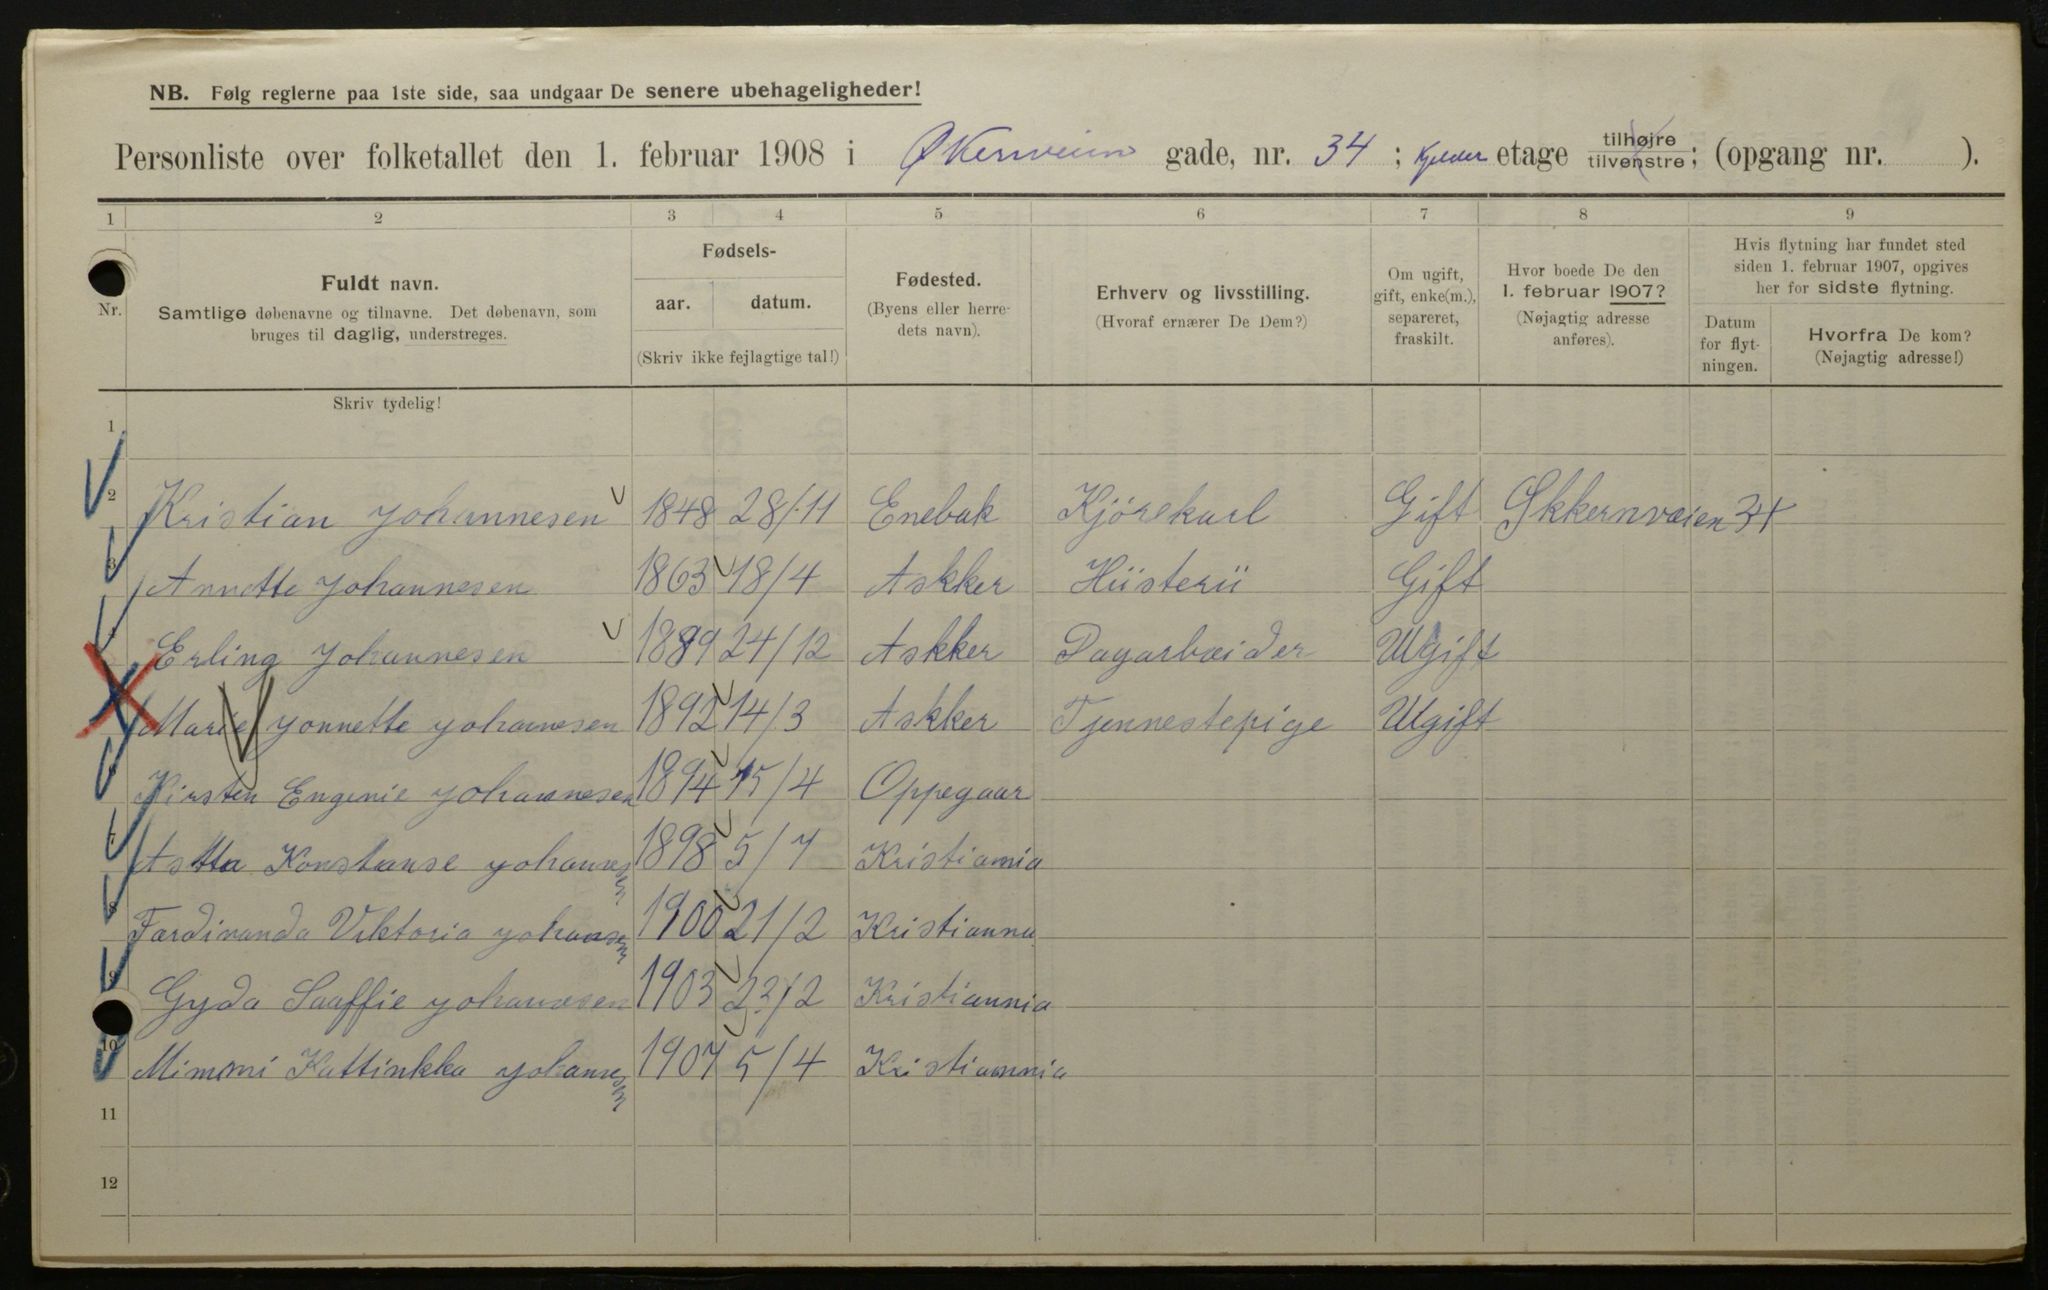 NB. Følg reglerne paa 1ste side, saa undgaar De senere ubehageligheder!
Personliste over folketallet den 1. februar 1908 i Økernveien gade, nr. 34 ; Kjelder etage tilhøjre tilvenstre ; (opgang nr. ).
1 2 3 4 5 6 7 8 9
Nr.
Fuldt navn.
Samtlige døbenavne og tilnavne. Det døbenavn, som
bruges til daglig, understreges.
Fødsels-
aar. datum.
(Skriv ikke fejlagtige tal!)
Fødested.
(Byens eller herre-
dets navn).
Erhverv og livsstilling.
(Hvoraf ernærer De Dem?)
Om ugift,
gift, enke(m.),
separeret,
fraskilt.
Hvor boede De den
1. februar 1907?
(Nøjagtig adresse
anføres).
Hvis flytning har fundet sted
siden 1. februar 1907, opgives
her for sidste flytning.
Datum
for flyt-
ningen.
Hvorfra De kom?
(Nøjagtig adresse!)
Skriv tydelig!
1
2 Kristian Johannesen 1848 28/11 Enebak Kjörekarl Gift Økkernvæien 34
3 Annette Johannesen 1863 18/4 Askker Hüsterü Gift
4 Erling Johannesen 1889 24/12 Askker Dagarbæider Ugift
Marie Jonnette Johannesen 1892 14/3 Askker Tjennestepige Ugift
6 Kirsten Engenie Johannesen 1894 15/4 Oppegaar
7 Astta Konstanse Johannesen 1898 5/7 Kristiamia
8 Færdinanda Viktoria Johansen 1900 21/2 Kristianna
9 Gyda Saaffie Johannesen 1903 22/2 Kristiannia
10 Mimmi Kattinkka Johannesen 1907 5/4 Kristiamnia
11
12